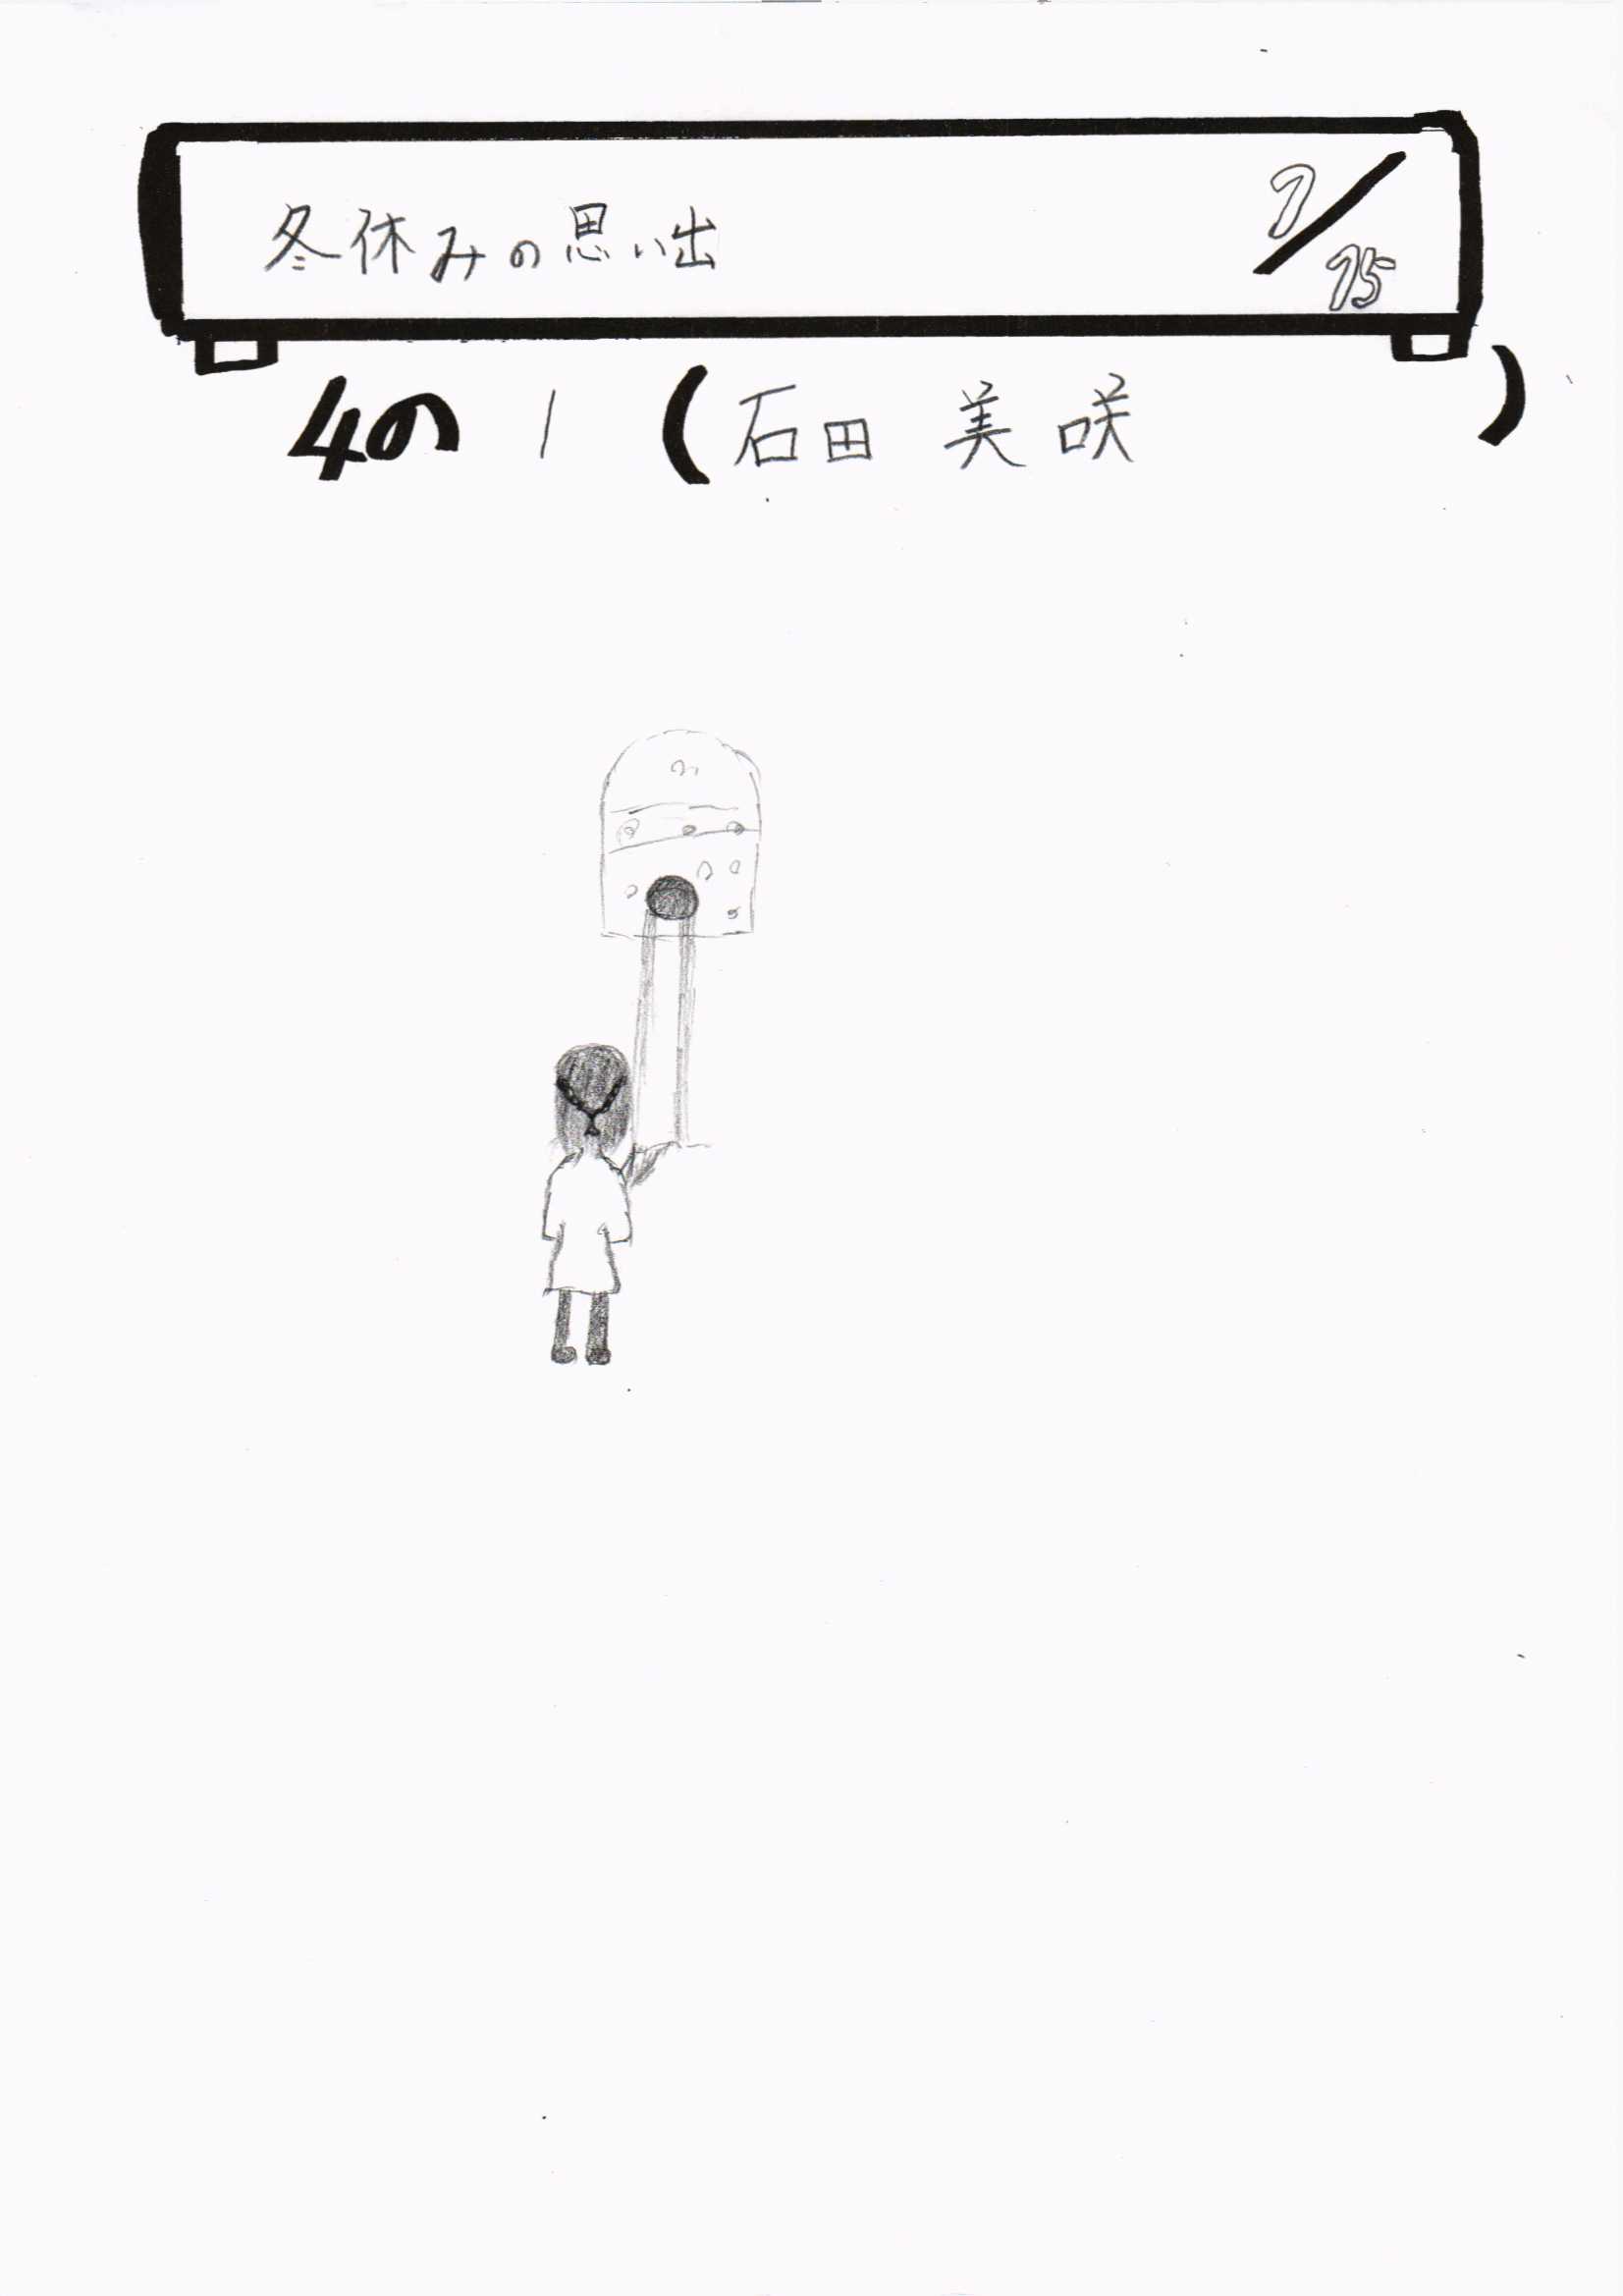 冬休みの思い出 1/15
4の1(石田 美咲)